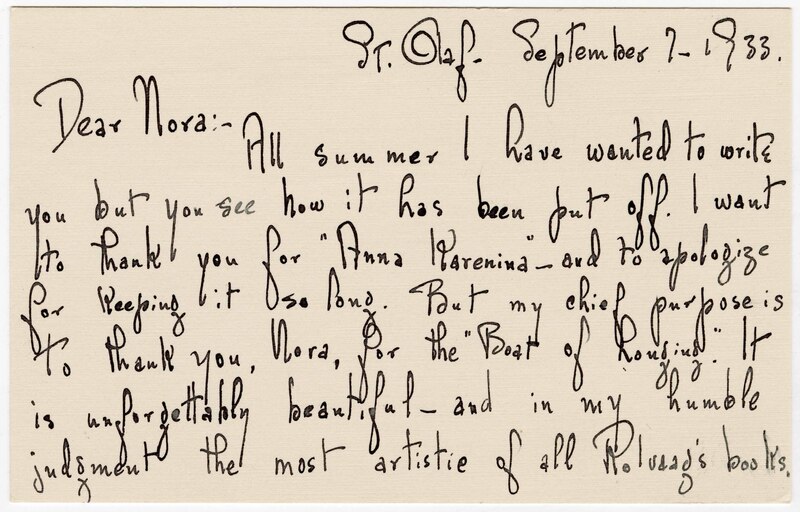 St. Olaf- September 7- 1933.
Dear Nora:-
All summer I have wanted to write
you but you see how it has been put off. I want
to thank you for "Anna Karenina"- and to apologize
for keeping it so long. But my chief purpose is
to thank you, Nora, for the "Boat of Longing." It
is unforgettably beautiful- and in my humble
judgment the most artistic of all Rolvaag's books.